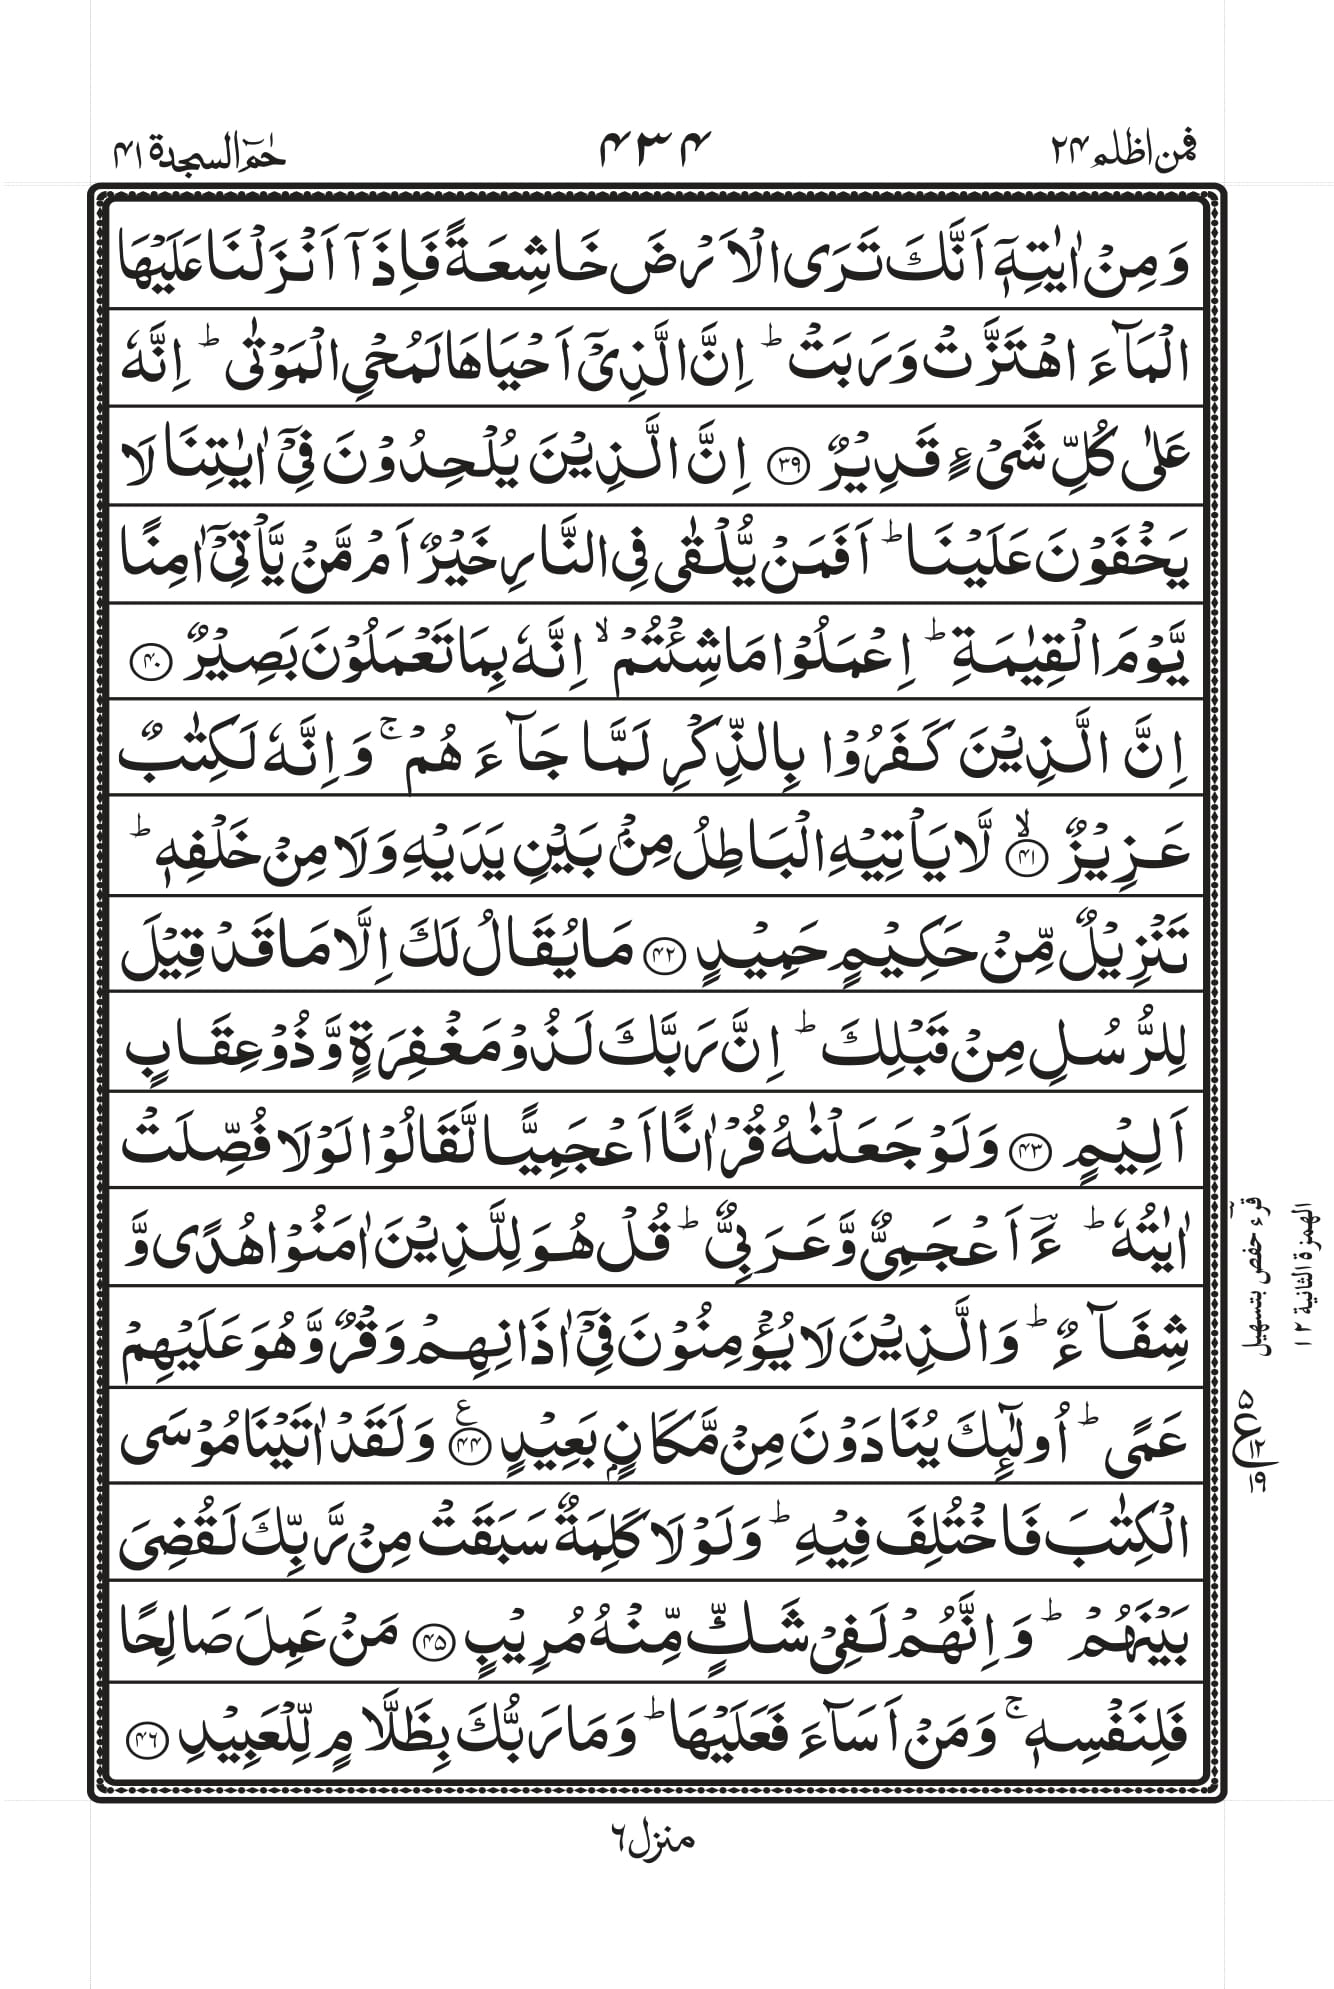 فمن اظلم ۲۴
۴۳۴
حٰمٓ السجدة ۴۱
وَ مِنْ اٰیٰتِهٖۤ اَنَّكَ تَرَی الْاَرْضَ خَاشِعَةً فَاِذَاۤ اَنْزَلْنَا عَلَیْهَا
الْمَآءَ اهْتَزَّتْ وَ رَبَتْ ؕ اِنَّ الَّذِیْۤ اَحْیَاهَا لَمُحْیِ الْمَوْتٰی ؕ اِنَّهٗ
عَلٰی كُلِّ شَیْءٍ قَدِیْرٌ ﴿۳۹﴾ اِنَّ الَّذِیْنَ یُلْحِدُوْنَ فِیْۤ اٰیٰتِنَا لَا
یَخْفَوْنَ عَلَیْنَا ؕ اَفَمَنْ یُّلْقٰی فِی النَّارِ خَیْرٌ اَمْ مَّنْ یَّاْتِیْۤ اٰمِنًا
یَّوْمَ الْقِیٰمَةِ ؕ اِعْمَلُوْا مَا شِئْتُمْ ۙ اِنَّهٗ بِمَا تَعْمَلُوْنَ بَصِیْرٌ ﴿۴۰﴾
اِنَّ الَّذِیْنَ كَفَرُوْا بِالذِّكْرِ لَمَّا جَآءَهُمْ ۚ وَ اِنَّهٗ لَكِتٰبٌ
عَزِیْزٌ ﴿ۙ۴۱﴾ لَّا یَاْتِیْهِ الْبَاطِلُ مِنْۢ بَیْنِ یَدَیْهِ وَ لَا مِنْ خَلْفِهٖ ؕ
تَنْزِیْلٌ مِّنْ حَكِیْمٍ حَمِیْدٍ ﴿۴۲﴾ مَا یُقَالُ لَكَ اِلَّا مَا قَدْ قِیْلَ
لِلرُّسُلِ مِنْ قَبْلِكَ ؕ اِنَّ رَبَّكَ لَذُوْ مَغْفِرَةٍ وَّ ذُوْ عِقَابٍ
اَلِیْمٍ ﴿۴۳﴾ وَ لَوْ جَعَلْنٰهُ قُرْاٰنًا اَعْجَمِیًّا لَّقَالُوْا لَوْ لَا فُصِّلَتْ
اٰیٰتُهٗ ؕ ءَؔاَعْجَمِیٌّ وَّ عَرَبِیٌّ ؕ قُلْ هُوَ لِلَّذِیْنَ اٰمَنُوْا هُدًی وَّ
شِفَآءٌ ؕ وَ الَّذِیْنَ لَا یُؤْمِنُوْنَ فِیْۤ اٰذَانِهِمْ وَقْرٌ وَّ هُوَ عَلَیْهِمْ
عَمًی ؕ اُولٰٓىِٕكَ یُنَادَوْنَ مِنْ مَّكَانٍۭ بَعِیْدٍ ﴿۴۴﴾ ع وَ لَقَدْ اٰتَیْنَا مُوْسَی
الْكِتٰبَ فَاخْتُلِفَ فِیْهِ ؕ وَ لَوْ لَا كَلِمَةٌ سَبَقَتْ مِنْ رَّبِّكَ لَقُضِیَ
بَیْنَهُمْ ؕ وَ اِنَّهُمْ لَفِیْ شَكٍّ مِّنْهُ مُرِیْبٍ ﴿۴۵﴾ مَنْ عَمِلَ صَالِحًا
فَلِنَفْسِهٖ ۚ وَ مَنْ اَسَآءَ فَعَلَیْهَا ؕ وَ مَا رَبُّكَ بِظَلَّامٍ لِّلْعَبِیْدِ ﴿۴۶﴾
قرء حفص بتسهيل
الهمزة الثانية ۱۲
۵
ع
۱۲
۱۹
منزل ۶